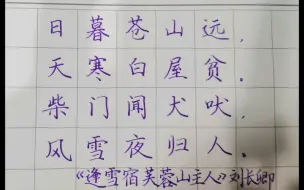 日暮苍山远，
天寒白屋贫。
柴门闻犬吠，
风雪夜归人。
《逢雪宿芙蓉山主人》刘长卿